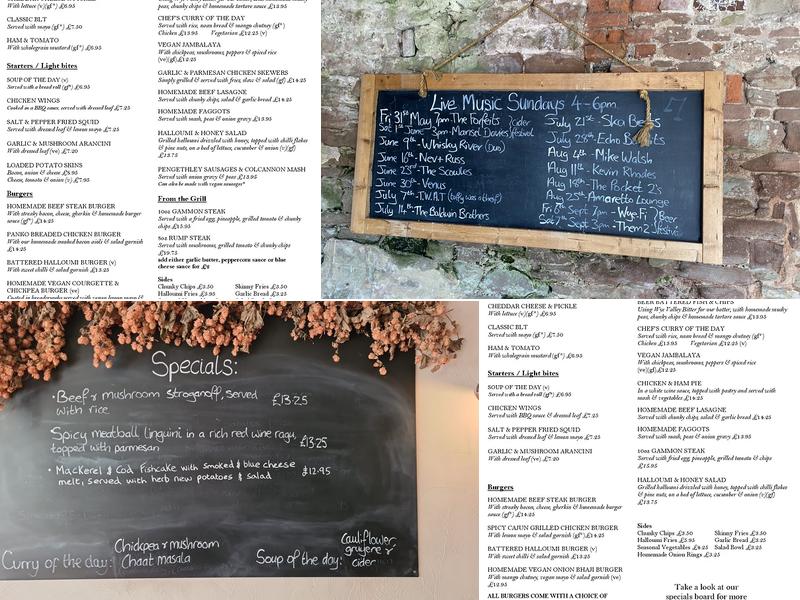 With lettuce (v)(gf*) £6.95
CLASSIC BLT
Served with mayo (gf*) £7.50
HAM & TOMATO
With wholegrain mustard (gf*) £6.95
Starters / Light bites
SOUP OF THE DAY (v)
Served with a bread roll (gf*) £6.95
CHICKEN WINGS
Cooked in a BBQ sauce, served with dressed leaf £7.25
SALT & PEPPER FRIED SQUID
Served with dressed leaf & lemon mayo £7.25
GARLIC & MUSHROOM ARANCINI
With dressed leaf (ve) £7.20
LOADED POTATO SKINS
Bacon, onion & cheese £6.95
Cheese, tomato & onion (v) £7.95
Burgers
HOMEMADE BEEF STEAK BURGER
With streaky bacon, cheese, gherkin & homemade burger
sauce (gf*) £14.25
PANKO BREADED CHICKEN BURGER
With our homemade smoked bacon aioli & salad garnish
£14.25
BATTERED HALLOUMI BURGER (v)
With sweet chilli & salad garnish £13.25
HOMEMADE VEGAN COURGETTE &
CHICKPEA BURGER (ve)
peas, chunky chips & homemade tartare sauce £13.95
CHEF'S CURRY OF THE DAY
Served with rice, naan bread & mango chutney (gf*)
Chicken £13.95 Vegetarian £12.25 (v)
VEGAN JAMBALAYA
With chickpeas, mushrooms, peppers & spiced rice
(ve)(gf)£12.25
GARLIC & PARMESAN CHICKEN SKEWERS
Simply grilled & served with fries, slaw & salad (gf) £14.25
HOMEMADE BEEF LASAGNE
Served with chunky chips, salad & garlic bread £14.25
HOMEMADE FAGGOTS
Served with mash, peas & onion gravy £13.95
HALLOUMI & HONEY SALAD
Grilled halloumi drizzled with honey, topped with chilli flakes
& pine nuts, on a bed of lettuce, cucumber & onion (v)(gf)
£13.75
PENGETHLEY SAUSAGES & COLCANNON MASH
Served with onion gravy & peas £13.95
Can also be made with vegan sausages*
From the Grill
10oz GAMMON STEAK
Served with a fried egg, pineapple, grilled tomato & chunky
chips £15.95
8oz RUMP STEAK
Served with mushrooms, grilled tomato & chunky chips
£19.75
add either garlic butter, peppercorn sauce or blue
cheese sauce for £2
Sides
Chunky Chips £3.50 Skinny Fries £3.50
Halloumi Fries £5.95 Garlic Bread £3.25
Live Music Sundays 4-6pm
Fri 31st May 7pm The Forfeits
Sat 1st June 3pm Marisel Davies
?cider
festival
June 9th - Whisky River (Duo)
June 16th - Nev + Russ
June 23rd - The Scoutes
June 30th - Venus
July 7th - T.W.A.T
July 14th - The Baldwin Brothers
July 21st - Ska
July 28th - Echo
Aug 4th - Mike Walsh
Aug 11th - Kevin Rhodes
Aug 18th - The Pocket 2's
Aug 25th - Amaretto Lounge
Fri 6th Sept 7pm - Wye-Fi
Sat 7th Sept 3pm - Them 2
Beer
Specials:
• Beef & mushroom stroganoff, served
with rice £13.25
Spicy meatball linguini in a rich red wine ragu,
topped with parmesan £13.25
• Mackerel & Cod fishcake with smoked & blue cheese
melt, served with herb new potatoes & salad £12.95
Curry of the day: Chickpea & mushroom
Chaat masala
Soup of the day: Cauliflower,
gruyere &
cider
CHEDDAR CHEESE & PICKLE
With lettuce (v)(gf*) £6.95
CLASSIC BLT
Served with mayo (gf*) £7.50
HAM & TOMATO
With wholegrain mustard (gf*) £6.95
Starters / Light bites
SOUP OF THE DAY (v)
Served with a bread roll (gf*) £6.95
CHICKEN WINGS
Served with BBQ & dressed leaf £7.25
SALT & PEPPER FRIED SQUID
Served with dressed leaf & lemon mayo £7.25
GARLIC & MUSHROOM ARANCINI
With dressed leaf (ve) £7.20
Burgers
HOMEMADE BEEF STEAK BURGER
With streaky bacon, cheese, gherkin & homemade burger
sauce (gf*) £14.25
SPICY CAJUN GRILLED CHICKEN BURGER
With lemon mayo & salad garnish (gf*) £14.25
BATTERED HALLOUMI BURGER (v)
With sweet chilli & salad garnish £13.25
HOMEMADE VEGAN ONION BHAJI BURGER
With mango chutney, vegan mayo & salad garnish (ve)
£12.95
ALL BURGERS COME WITH A CHOICE OF
BEER BATTERED FISH & CHIPS
Using Wye Valley Bitter for our batter, with homemade mushy
peas, chunky chips & homemade tartare sauce £13.95
CHEF'S CURRY OF THE DAY
Served with rice, naan bread & mango chutney (gf*)
Chicken £13.95 Vegetarian £12.25 (v)
VEGAN JAMBALAYA
With chickpeas, mushrooms, peppers & spiced rice
(ve)(gf)£12.25
CHICKEN & HAM PIE
In a white wine sauce, topped with pastry and served with
mash & vegetables £14.25
HOMEMADE BEEF LASAGNE
Served with chunky chips, salad & garlic bread £14.25
HOMEMADE FAGGOTS
Served with mash, peas & onion gravy £13.95
10oz GAMMON STEAK
Served with fried egg, pineapple, grilled tomato & chips
£15.95
HALLOUMI & HONEY SALAD
Grilled halloumi drizzled with honey, topped with chilli flakes
& pine nuts, on a bed of lettuce, cucumber & onion (v)(gf)
£13.75
Sides
Chunky Chips £3.50 Skinny Fries £3.50
Halloumi Fries £5.95 Garlic Bread £3.25
Seasonal Vegetables £4.25 Salad Bowl £3.25
Homemade Onion Rings £3.25
Take a look at our
specials board for more